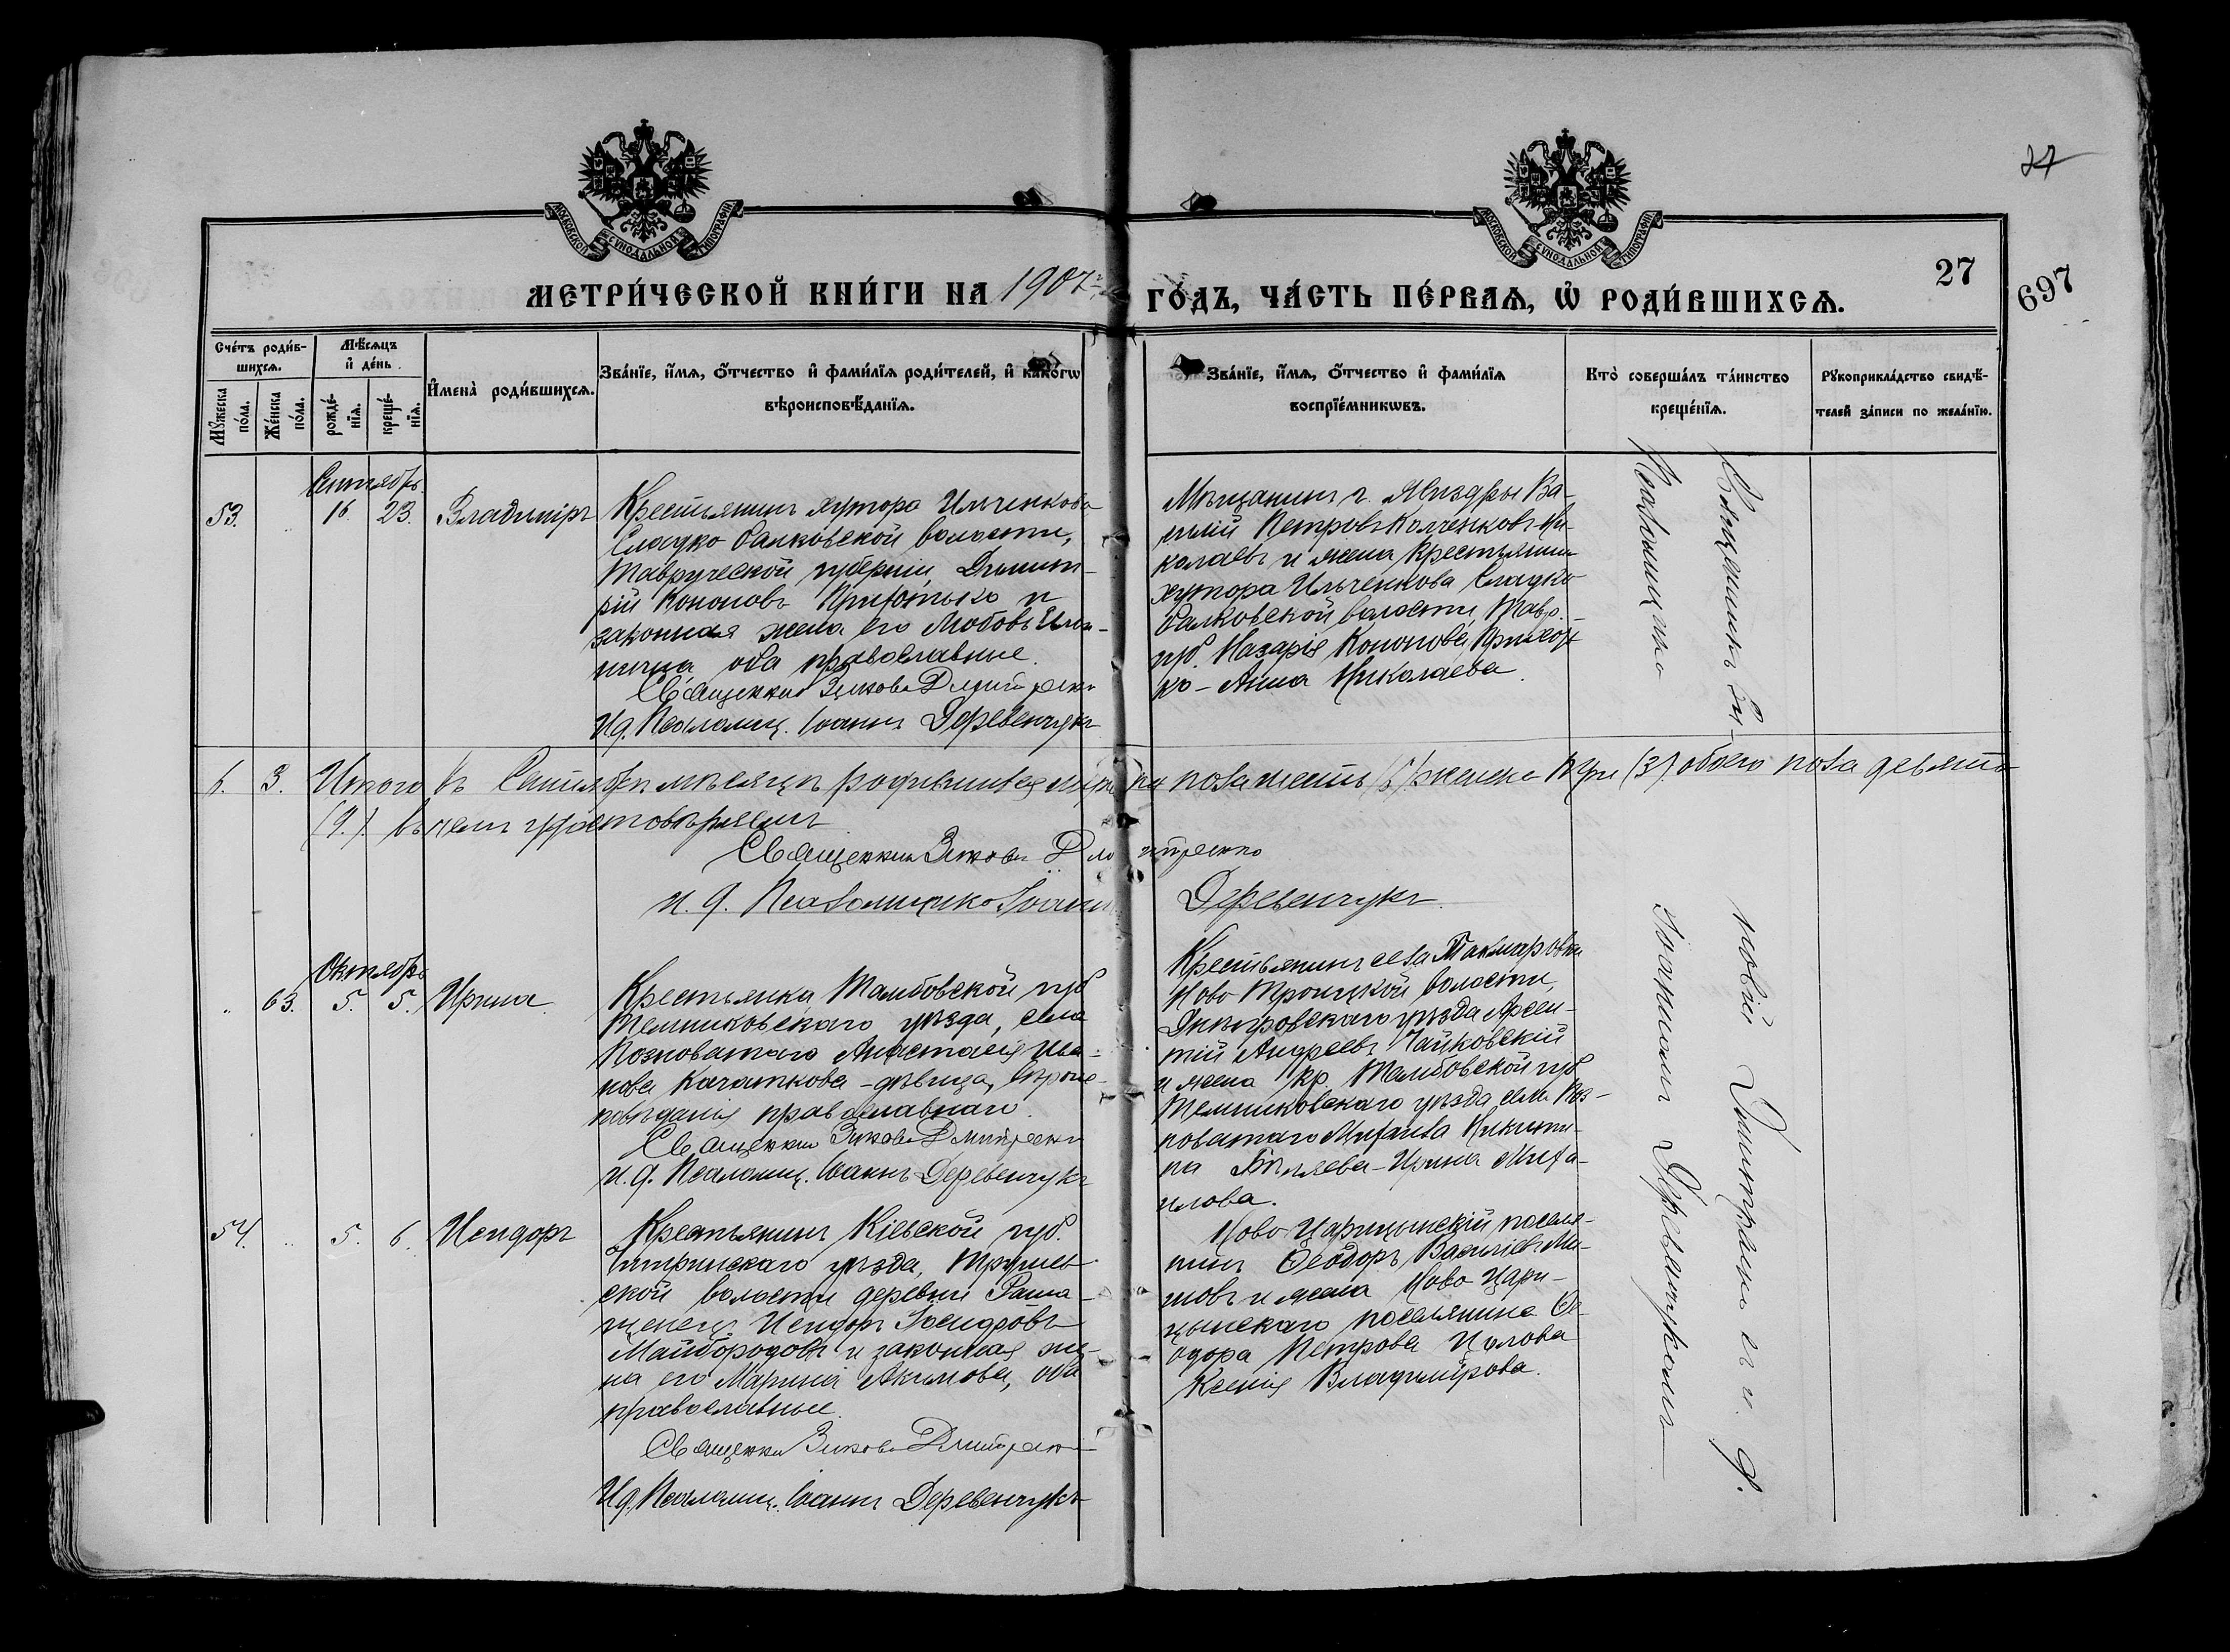 27
МОСКОВСКОЙ СѴНОДАЛЬНОЙ ТИПОГРАФІИ
МОСКОВСКОЙ СѴНОДАЛЬНОЙ ТИПОГРАФІИ
27
697
МЕТРИ́ЧЕСКОЙ КНИ́ГИ НА 1907 ГО́ДЪ, ЧА́СТЬ ПЕ́РВАѦ, Ѽ РОДИ́ВШИХСѦ.
Сче́тъ роди́в-
шихсѧ.
Мꙋжеска
по́ла.
Же́нска
по́ла.
Мѣ́сѧцъ
и҆ де́нь.
рожде́-
нїѧ.
креще́-
нїѧ.
И҆мена̀ роди́вшихсѧ.
Зва́нїе, и҆́мѧ, ѻ҆́тчество и҆ фами́лїѧ роди́телей, и҆ како́гѡ
вѣроисповѣ́данїѧ.
Зва́нїе, и҆́мѧ, ѻ҆́тчество и҆ фами́лїѧ
воспрїе́мникѡвъ.
Кто̀ соверша́лъ та́инство
креще́нїѧ.
Рꙋкоприкла́дство свидѣ́-
телей за́писи по жела́нїю.
Сентябрь.
53. 16. 23. Владиміръ
Крестьянинъ хутора Ильченкова
Сладко Балковской волости,
Таврической губерніи, Димит-
рій Кононовъ Приходько и
законная жена его Любовь
оба православные.
Священникъ Зиновій Дмитренко
И д. Псаломщ. Іоаннъ Деревенчукъ
Мѣщанинъ г. Жиздры Ва-
силій Петровъ Колченковъ Ни-
колаевъ и жена крестьянина
хутора Ильченкова Сладко
Балковской волости, Тавр.
губ. Назарія Кононова Приходь-
ко - Анна Николаева.
6. 3. Итого въ Сентябрѣ мѣсяцѣ родившихся мужска пола шесть (6) женска три (3) обоего пола девять
(9). въ чемъ удостовѣряемъ
Священникъ Зиновій Дмитренко
и. д. Псаломщика Іоаннъ Деревенчукъ.
Октябрь
63. 5. 5. Ирина.
Крестьянка Тамбовской губ
Темниковскаго уѣзда, села
Возноватаго Анастасія Ива-
нова Качаткова - дѣвица, вѣроис-
повѣданія православнаго.
Священникъ Зиновій Дмитренко
и. д. Псаломщ. Іоаннъ Деревенчукъ
Крестьянинъ села
Ново Троицкой волости,
Днѣпровскаго уѣзда Арсен-
тій Андреевъ Чайковскій
и жена кр. Тамбовской губ
Темниковскаго уѣзда села
Михаила Никити-
на Бѣляева - Ирина Миха-
илова.
54. 5. 6. Исидоръ
Крестьянинъ Кіевской губ.
Чигиринскаго уѣзда, Трушев-
ской волости деревни
Исидоръ Іосифовъ
Майбородовъ и законная же-
на его Марина Акимова, оба
православные.
Священникъ Зиновій Дмитренко
И д. Псаломщ. Іоаннъ Деревенчукъ
Ново-Царицынскій поселя-
нинъ Ѳеодоръ Василіевъ
и жена Ново Цари-
цынскаго поселянина Ѳе-
одора Петрова
Ксенія Владимірова.
Священникъ Зи-
новій Димитренко и и. д.
Псаломщика
Іоанномъ Деревенчукомъ